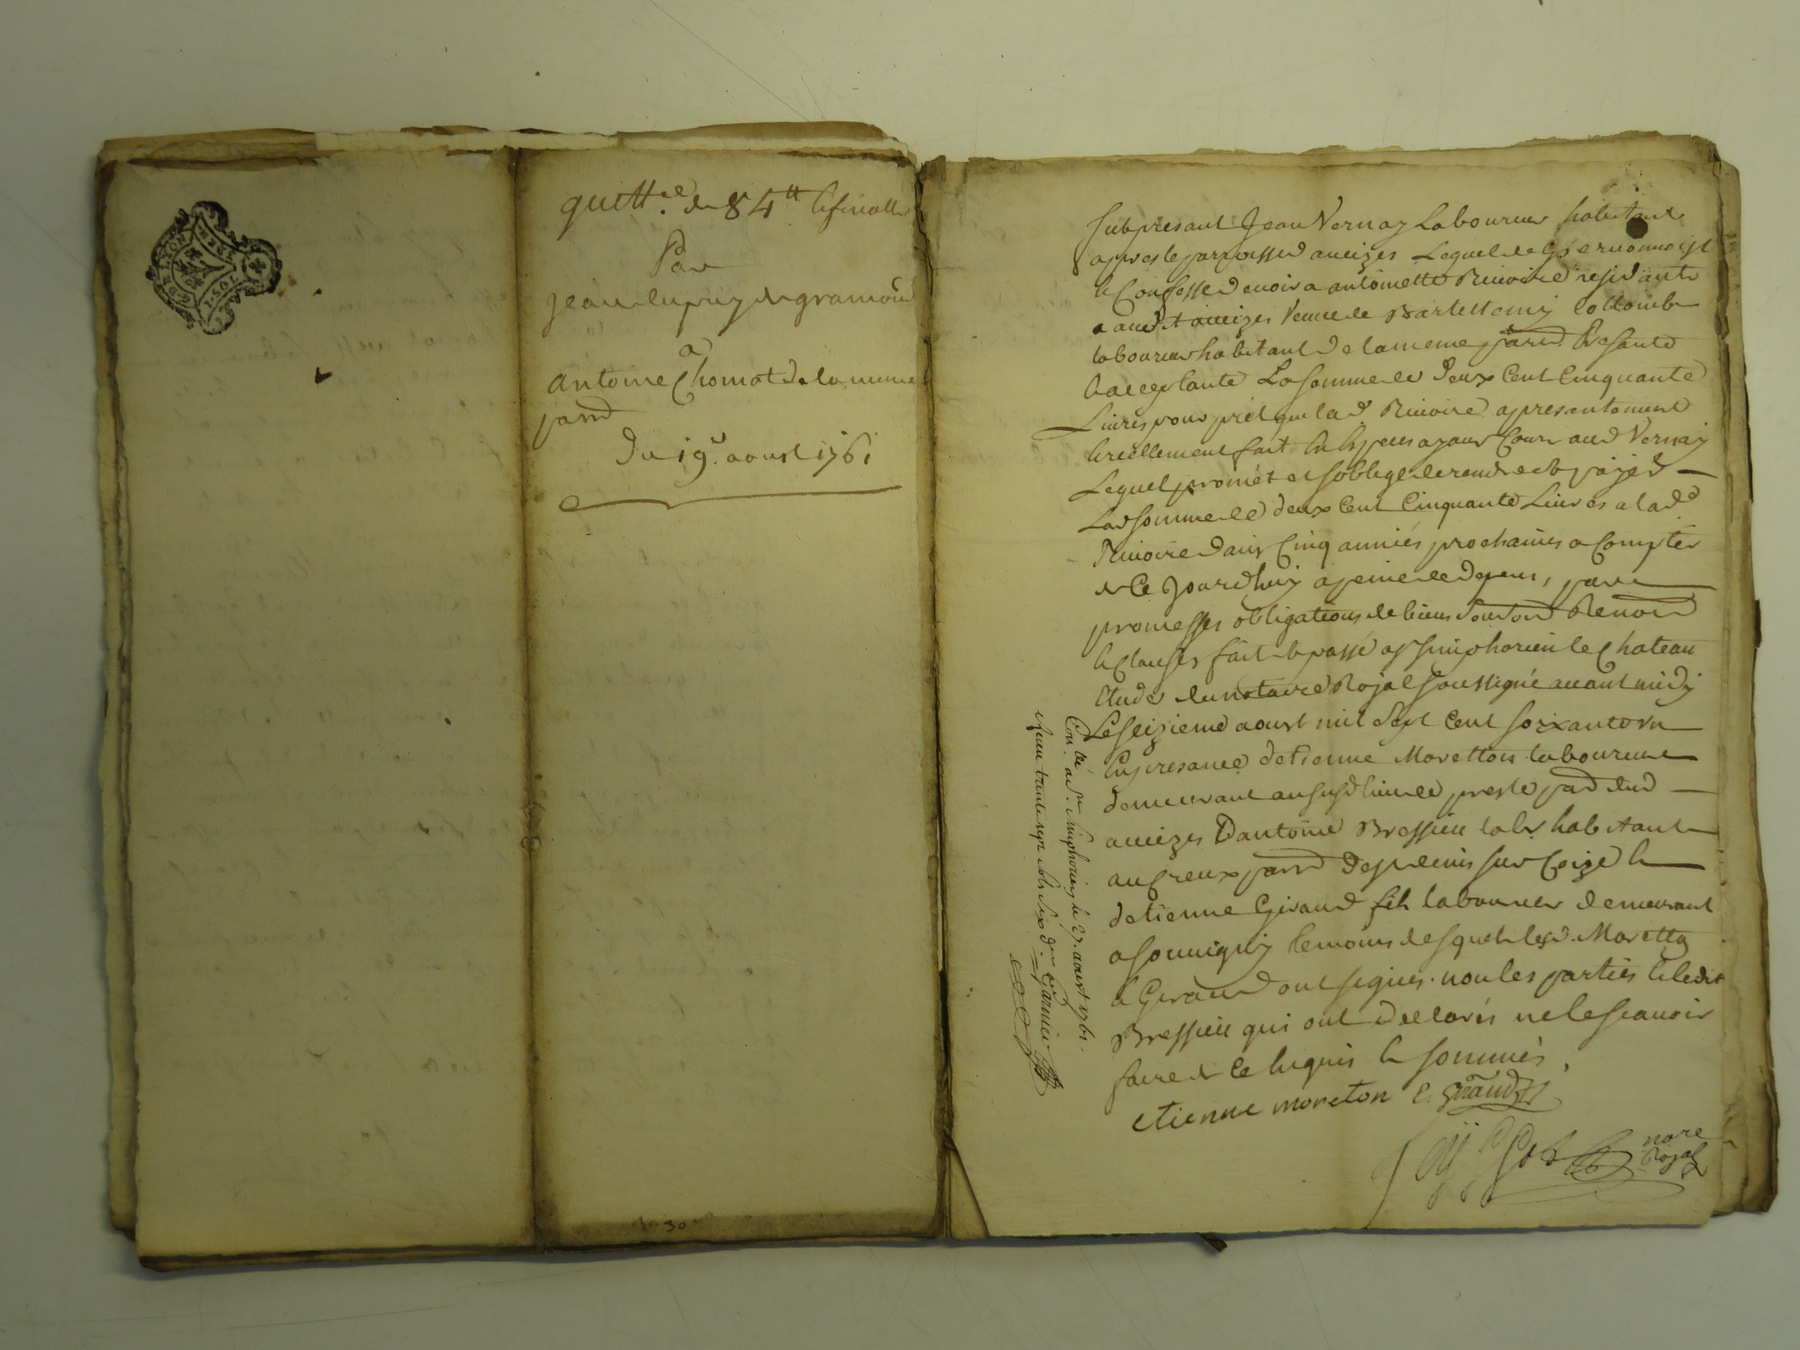 quitt.ce de 84tt & finalle
Par
Jean dupuy de gramond
a
antoine Chomat de la meme
parr
Du 19.e aoust 1761
Fut presant Jean Vernay Laboureur habitant
apres le parroisse d aveizes Lequel de gre reconnoist
& Confesse devoir a antoinette Rivoire residante
aud aveizes Veuve de Barlellemy Collombe
laboureur habitant de la meme parr. Presante
& acceptante La somme de deux Cent Cinquante
Livres pour prêt que lad Rivoire a presentement
& reellement fait en Especes ayant Cours aud Vernay
Lequel promét et soblige de rendre et payer
Lad somme de deux Cent Cinquante Livres a lad
Rivoire dans Cinq années prochaines a Compter
de Ce Jourdhuy a peine de depens, par
promesses obligations de biens Renon
& Clauses fait & passé a St Simphorien le Chateau
Etude du notaire Royal soussigné avant midy
Le seizieme aoust mil sept Cent soixante un
En presance detienne Moretton laboureur
demeurant au parr dud
aveizes Dantoine Bressieu labr habitant
au Creux parr De st denis sur Coize &
detienne Giraud fils laboureur demeurant
a Souvigny temoins desquels lesd. Moretton
& Giraud ont signés. non les parties & ledit
Bressieu qui ont declarés ne le scavoir
faire de Ce Enquis & sommés
etienne moreton E. giraud
nore
Royal
Con.lé a St. Simphorien le 27. aoust 1761.
Reçu trente sept sols six drs Garnier
GEN. DE LYON